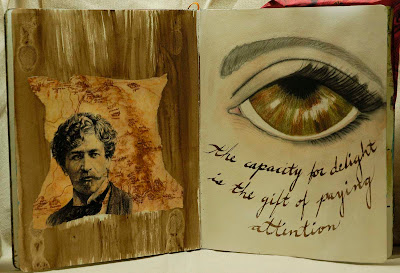 the capacity for delight
is the gift of paying
attention